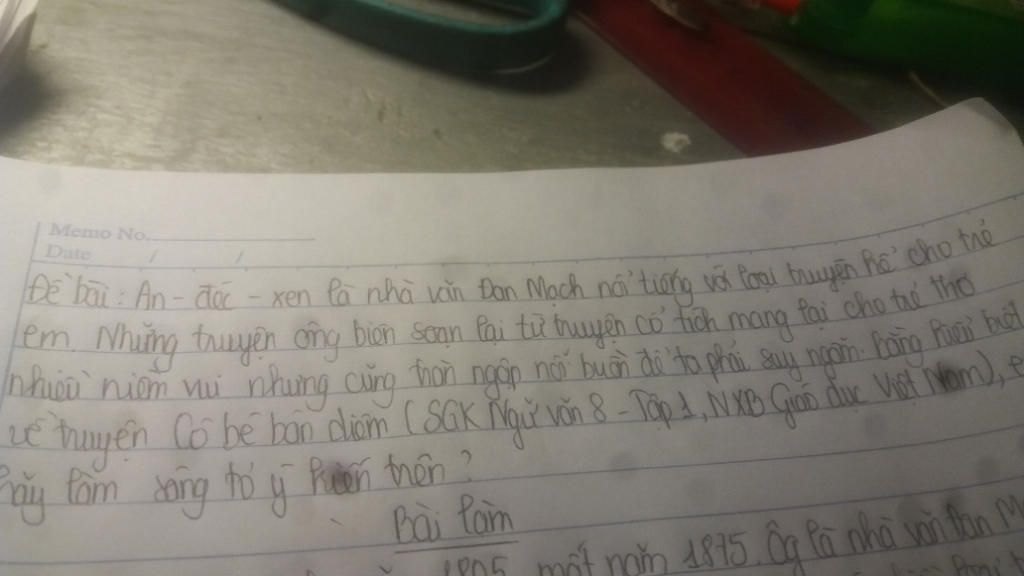 Memo No.
Date / /
Đề bài: An - đéc - xen là nhà văn Đan Mạch nổi tiếng với loại truyện kể cho trẻ
em. Những truyện ông biên soạn lại từ truyện cổ tích mang lại cho trẻ thơ
nhiều niềm vui nhưng cũng tràn ngập nỗi buồn để ta phải suy ngẫm. Bằng hiểu biết
về truyện Cô bé bán diêm (SGK Ngữ văn 8 - Tập 1, NXB Giáo dục Việt Nam), e
hãy làm sáng tỏ ý kiến trên?
Bài làm
1805 mất năm 1875. Ôg là nhà văn Đan M